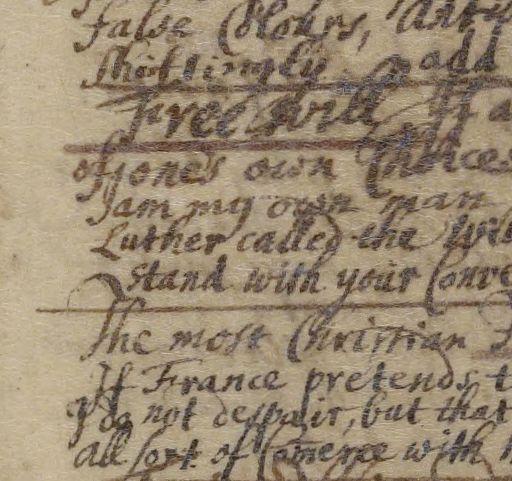 false Colours,
shiftingly add
Free will If a
of ones own Choices
I am my own man
Luther called the Wil
stand with your Conve
The most Christian
If France pretends t
I do not despair, but that
All sort of Comerce with